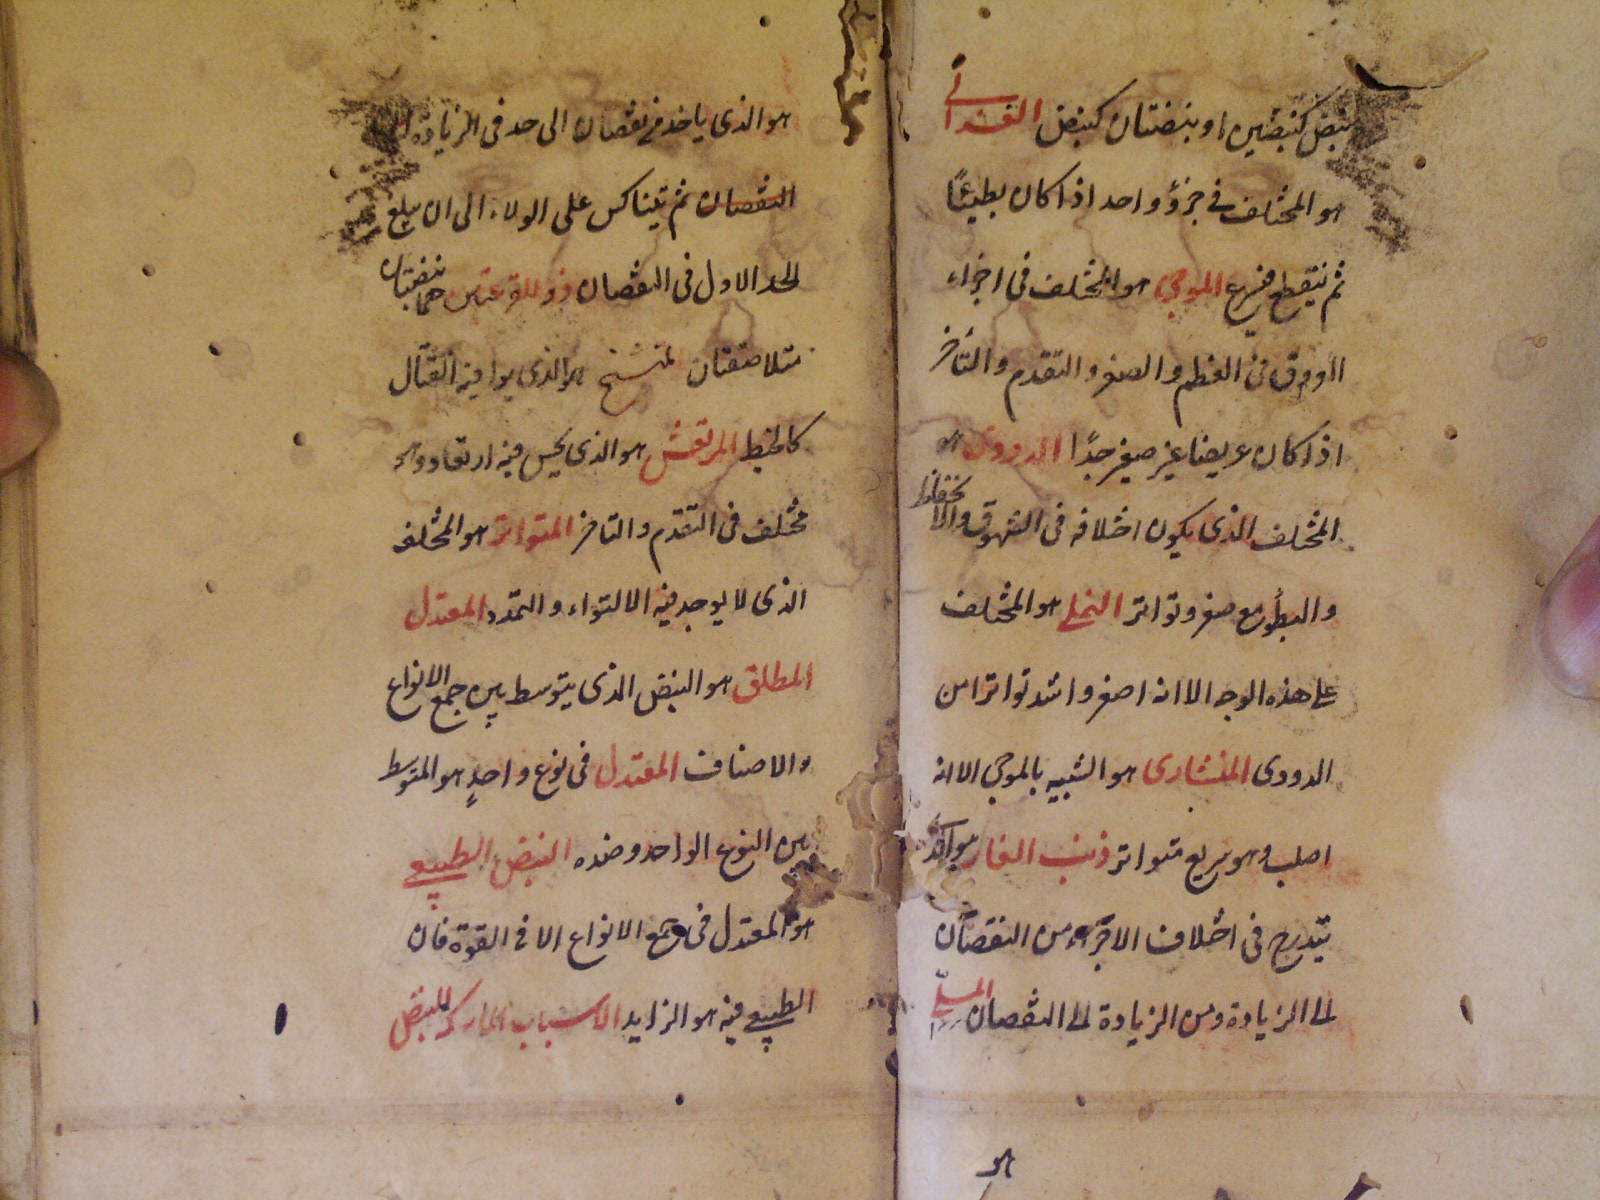 نبض كنبضين او بنبضتان كنبض الغزالى
هو المختلف فى جزؤ واحد اذا كان بطيئًا
ثم ينقطع فيسرع الموجى هو المختلف فى اجزاء
العروق فى العظم والصغر والتقدم والتأخر
اذا كان عريضا غير صغير جدًا الدودى هو
المختلف الذى يكون اختلافه فى الشهوق والانخفاظ
والبطؤ مع صغر وتواتر النملى هو المختلف
على هذه الوجه الا انه اصغر واشد تواترا من
الدودى المنشارى هو الشبيه بالموجى الا انه
اصلب وهو سريع متواتر ذنب الفار هو الذى
يتدرج فى اختلاف الاجزاء من النقصان
الى الزيادة ومن الزيادة الى النقصان المسلى
هو
هو الذى ياخذ فى نقصان الى حد فى الزيادة
النقصان ثم يتناكس على الولاء الى ان يبلغ
الحد الاول فى النقصان ذو القرعتين هما نبضتان
متلاصقتان متشنج هو الذى يوا فيه القتال
كالخيط المرتعش هو الذى يحس فيه ارتعاد وهو
مختلف فى التقدم والتاخر المتواتر هو المختلف
الذى لا يوجد فيه الا التواء والتمدد المعتدل
المطلق هو النبض الذى يتوسط بين جمع الانواع
والاصناف المعتدل فى نوع واحدٍ هو المتوسط
بين النوع الواحد وضده النبض الطبيعى
هو المعتدل فى جمع الانواع الا فى القوة فان
الطبيعى فيه هو الزايد الاسباب الماسكة للنبض